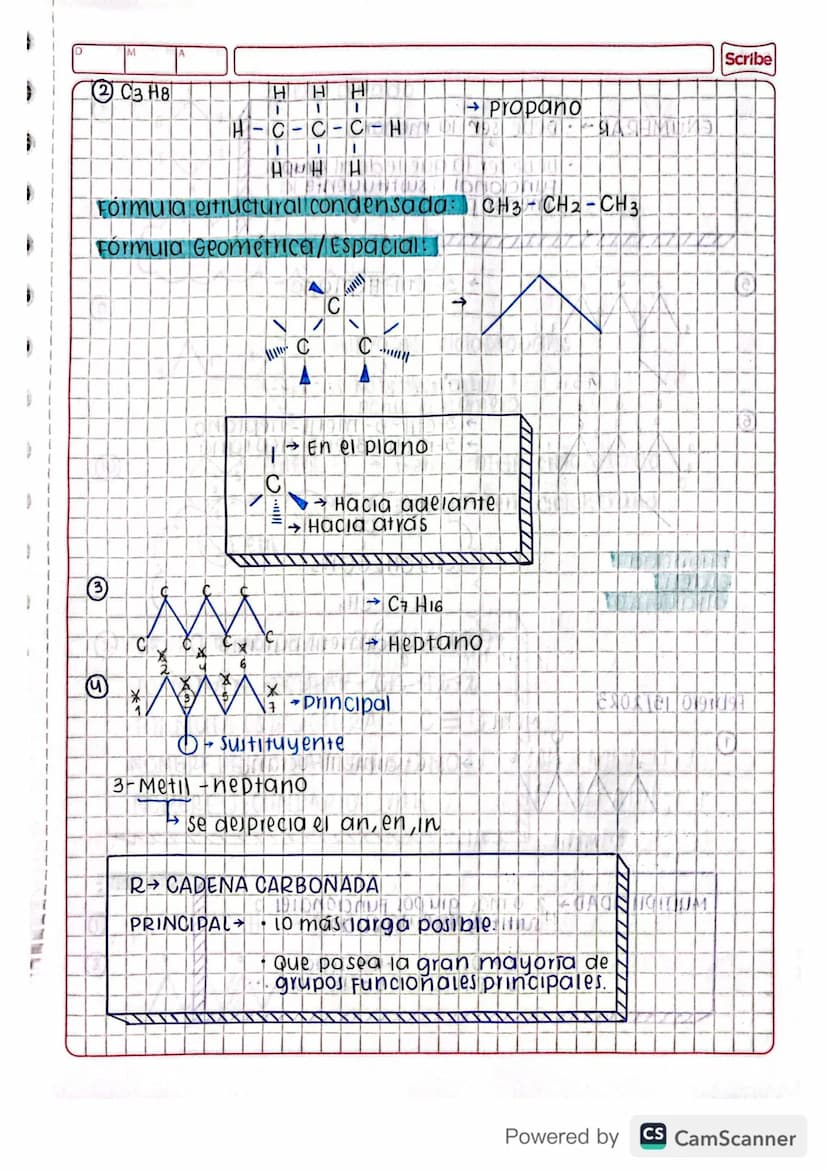 D M A
Scribe
② C3H8
H H H
H - C - C - C - H
H H H
→ Propano
Fórmula estructural condensada: CH3 - CH2 - CH3
Fórmula Geométrica/Espacial:
C →
C C
→ En el plano
C
→ Hacia adelante
→ Hacia atrás
③ C C C
→ C7 H16
C C C C
→ Heptano
④ 2 4 6
1 3 5 7
→ Principal
→ Sustituyente
3-Metil-heptano
↳ se desprecia el an, en, in
R→ CADENA CARBONADA
PRINCIPAL→ · lo más larga posible.
· Que posea la gran mayoría de
grupos Funcionales principales.
Powered by CS CamScanner